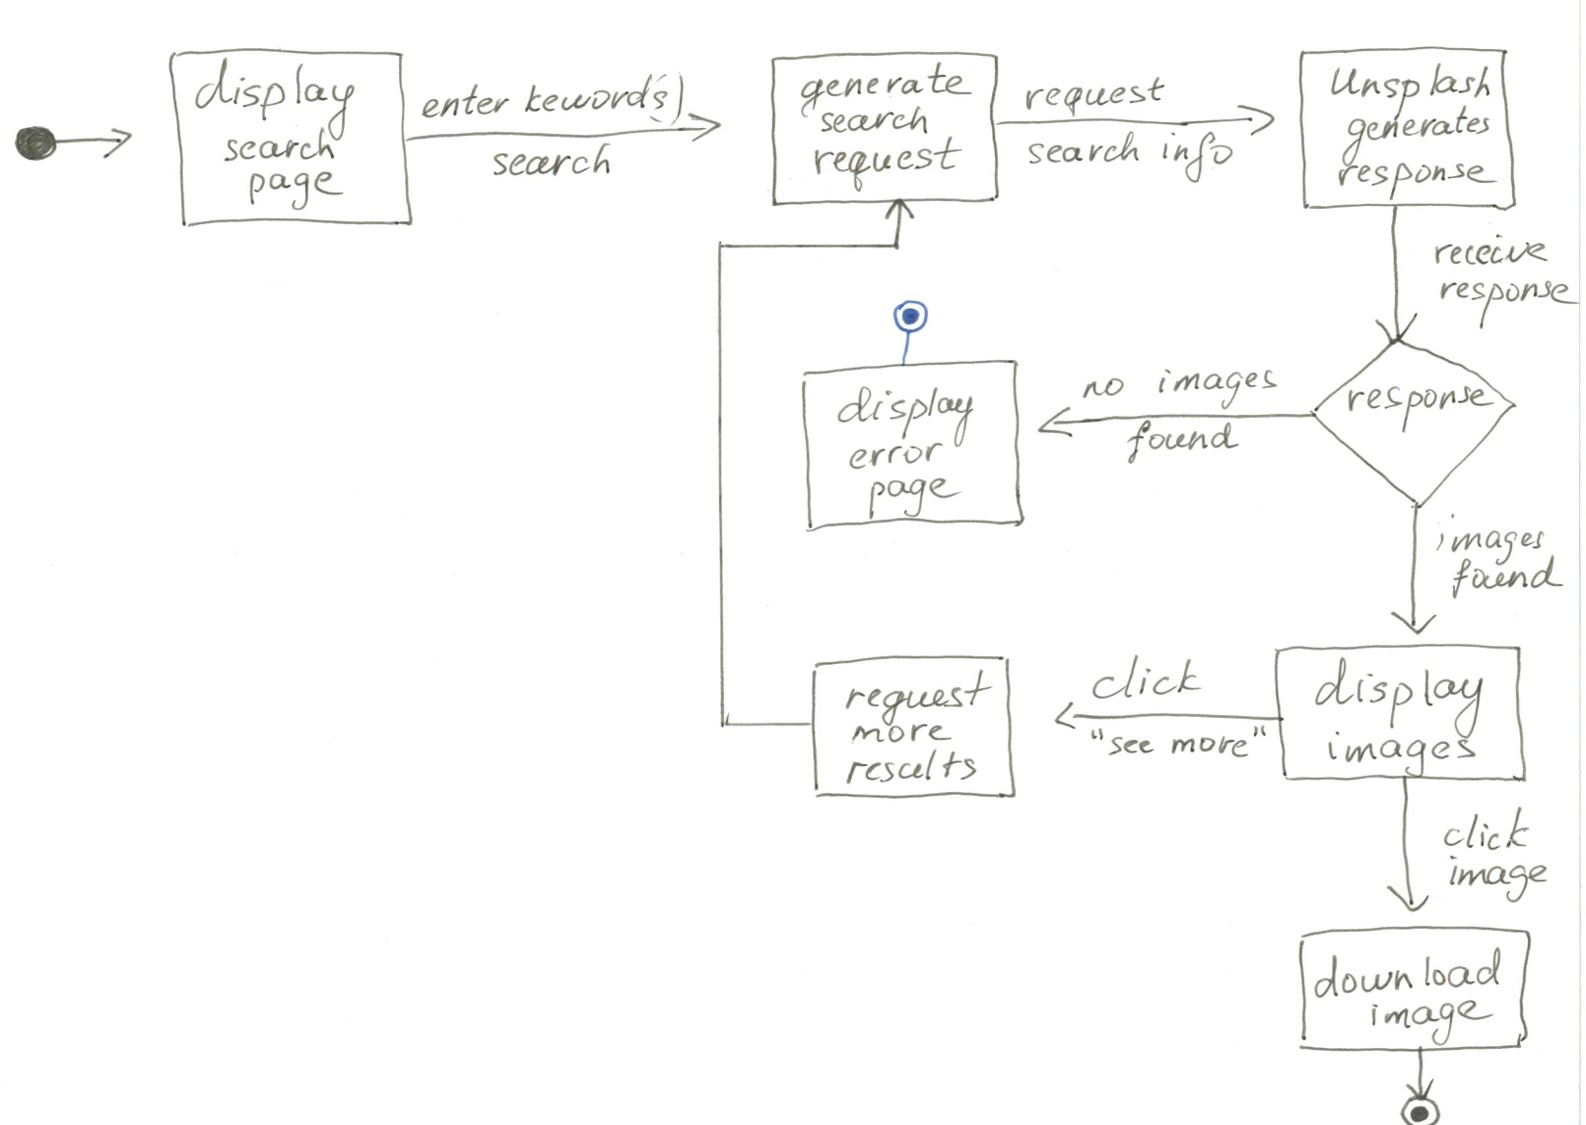 display
search
page
enter keword(s)
search
generate
search
request
request
search info
Unsplash
generates
response
receive
response
response
no images
found
display
error
page
images
found
display
images
click
"see more"
request
more
results
click
image
download
image